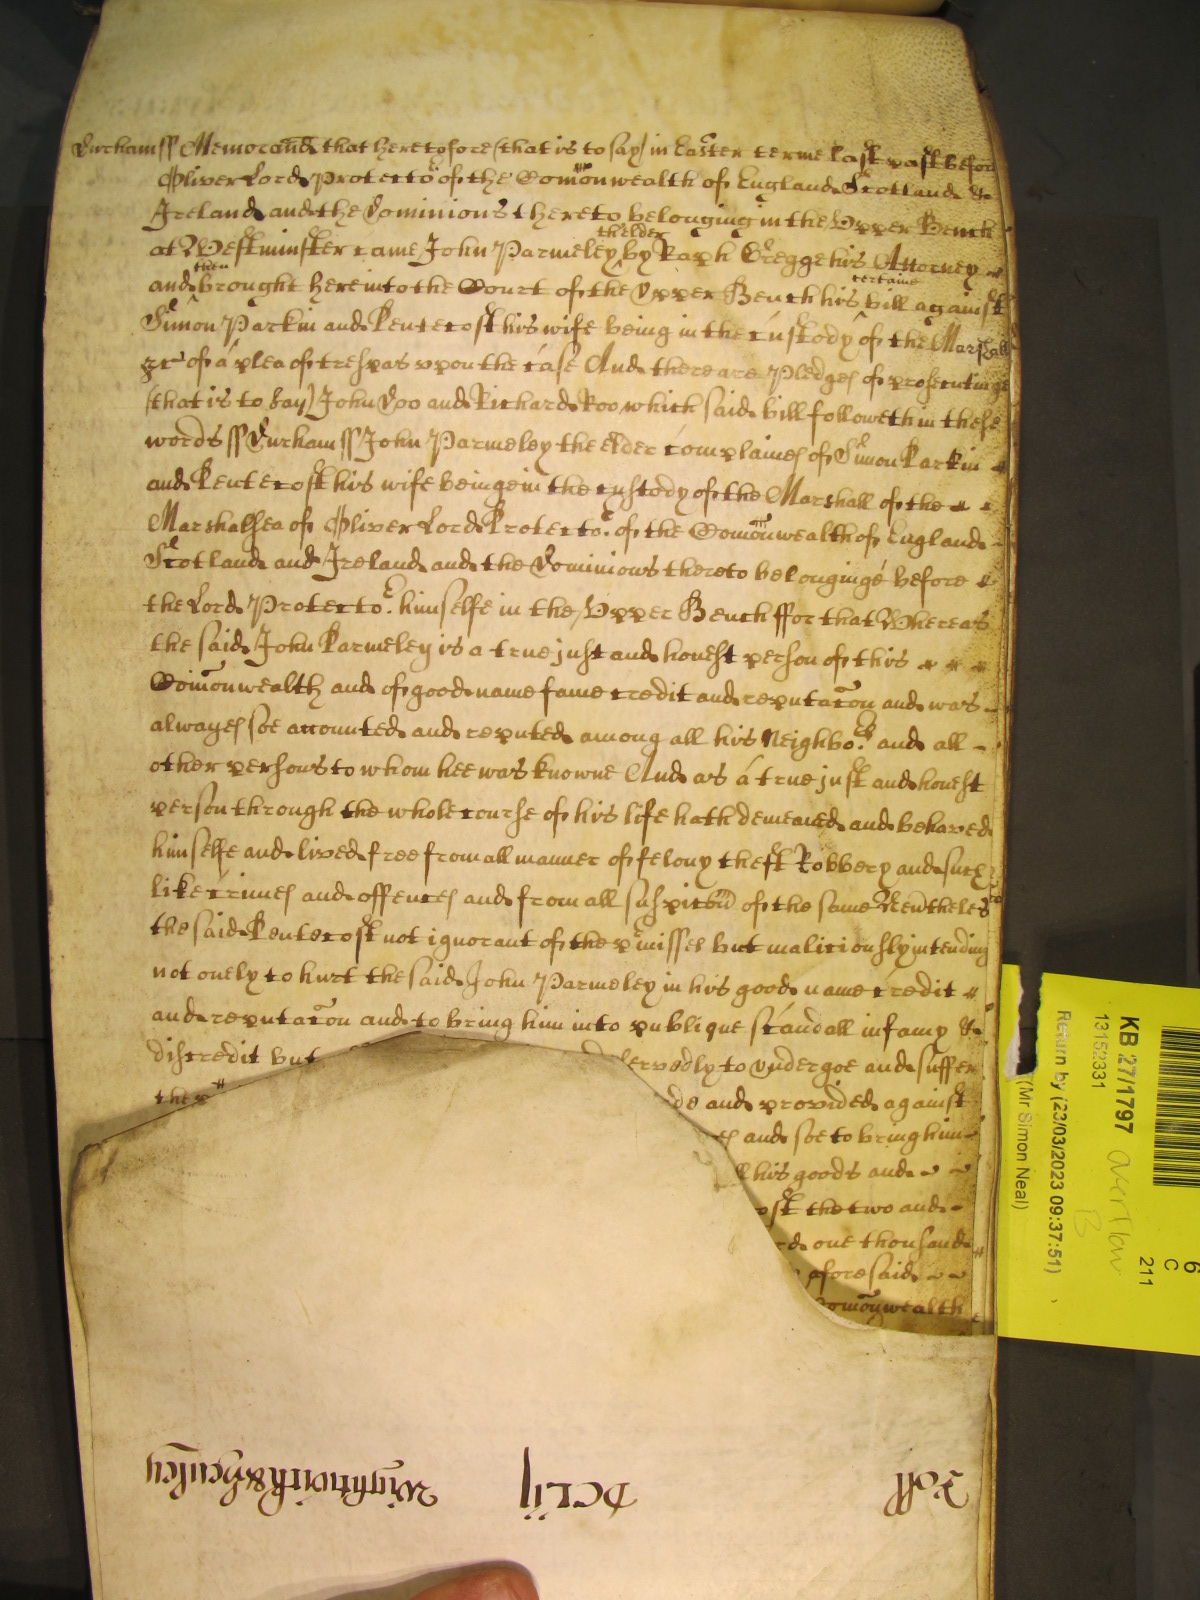 Durham ss Memorand that heretofore (that is to say) in Easter terme last past before
Oliver Lord Protector of the Comonwealth of England Scotland &
Ireland and the Dominions thereto belonging in the Upper Bench
at Westminster came John Parmeley the elder by Raph Gregge his Attorney
and then brought here into the Court of the Upper Bench his certaine bill against
Simon Parkin and Pentecost his wife being in the custody of the Marshall
&c of a plea of trespas upon the case And there are Pledges of prosecutinge
(that is to say) John Doo and Richard Roo which said bill followeth in these
words ss Durham ss John Parmeley the elder complaines of Simon Parkin
and Pentecost his wife beinge in the custody of the Marshall of the
Marshalsea of Oliver Lord Protector of the Comonwealth of England
Scotland and Ireland and the Dominions thereto belonginge before
the Lord Protector himselfe in the Upper Bench ffor that Whereas
the said John Parmeley is a true just and honest person of this
Comonwealth and of good name fame credit and reputacon and was
alwayes soe accounted and reputed among all his Neighbors and all
other persons to whom hee was knowne And as a true just and honest
person through the whole course of his life hath demeaned and behaved
himselfe and lived free from all manner of felony theft Robbery and such
like crimes and offences and from all suspicon of the same Nevertheles
the said Pentecost not ignorant of the pmisses but maliciously intending
not onely to hurt the said John Parmeley in his good name credit
and reputacon and to bring him into publique scandall infamy &
discredit but dervedly to undergoe and suffer
the p de and provided against
es and soe to bring him
ll his goods and
ost the two and
rd one thousand
aforesaid
Comonwealth
Roll
DCLij
Wightwick & Henley
KB 27/1797
13152331
Return by (23/03/2023 09:37:51)
(Mr Simon Neal)
overflow
B
6
C
211